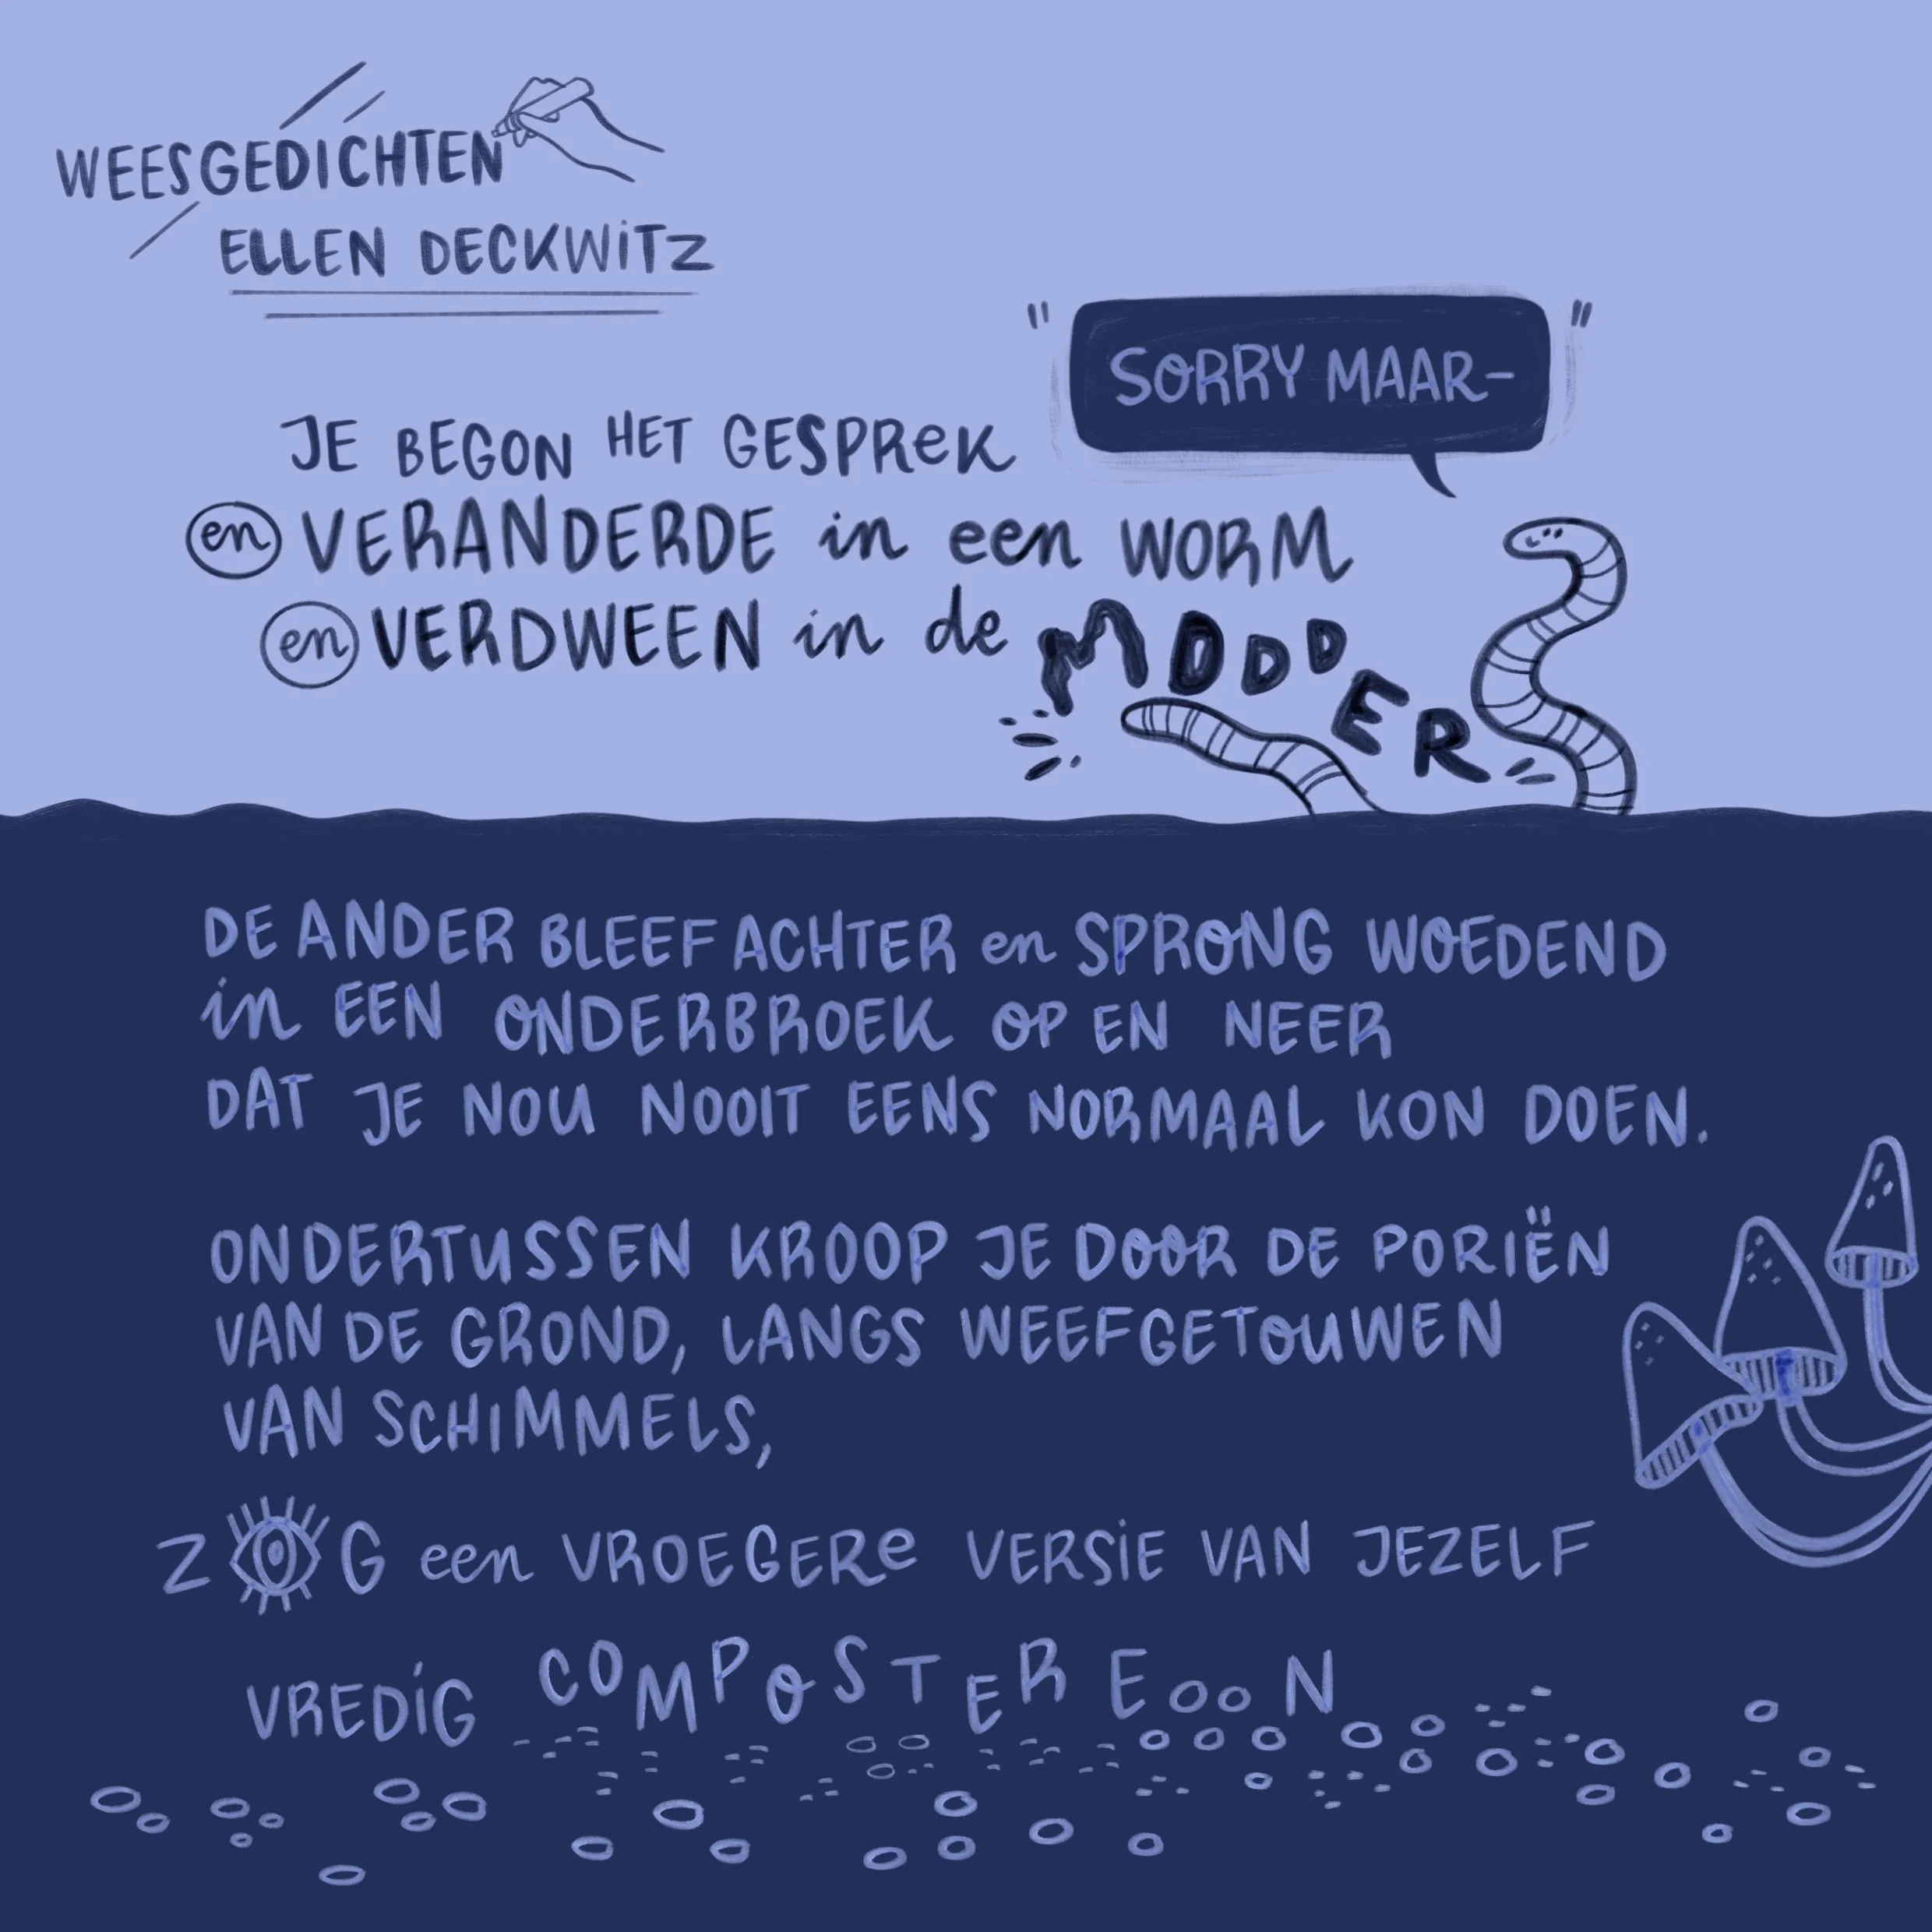 WEESGEDICHTEN
ELLEN DECKWITZ
JE BEGON HET GESPREK "SORRY MAAR-"
en VERANDERDE in een WORM
en VERDWEEN in de MODDER
DE ANDER BLEEF ACHTER en SPRONG WOEDEND
in EEN ONDERBROEK OP EN NEER
DAT JE NOU NOOIT EENS NORMAAL KON DOEN.
ONDERTUSSEN KROOP JE DOOR DE PORIËN
VAN DE GROND, LANGS WEEFGETOUWEN
VAN SCHIMMELS,
ZAG een VROEGERE VERSIE VAN JEZELF
VREDIG COMPOSTEREN